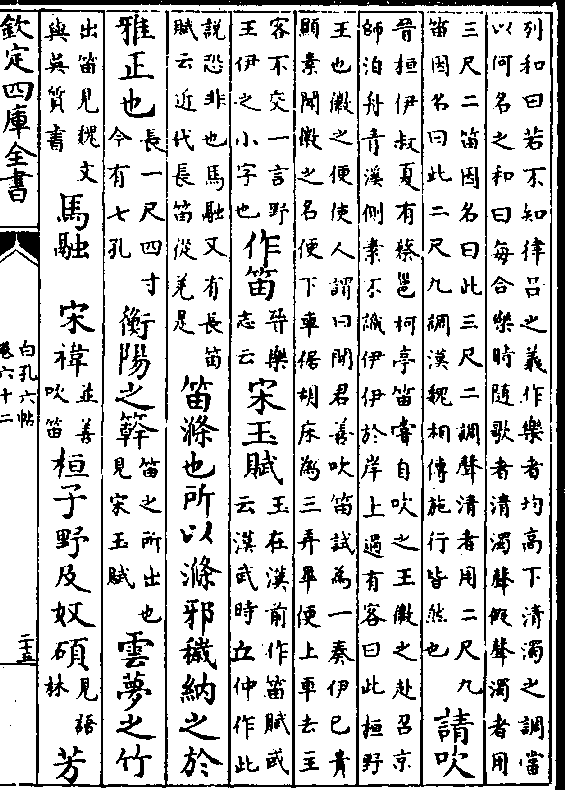 列和曰若不知律吕之義作樂者均高下清濁之調當
以何名之和曰每合樂時隨歌者清濁聲假聲濁者用
三尺二笛因名曰此三尺二調聲清者用二尺九
笛因名曰此二尺九調漢魏相傳施行皆然也
請吹
晉桓伊叔夏有蔡邕柯亭笛甞自吹之王徽之赴召京
師泊舟青溪側素不識伊伊於岸上過有客曰此桓野
王也徽之便使人謂曰聞君善吹笛試為一奏伊已貴
顯素聞徽之名便下車倨胡床為三弄畢便上車去主
客不交一言野
王伊之小字也
作笛
晉樂
志云
宋玉賦
玉在漢前作笛賦或
云漢武時丘仲作此
說恐非也馬融又有長笛
賦云近代長笛從羌是
笛滌也所以滌邪穢納之於
雅正也
長一尺四寸
今有七孔
衡陽之簳
笛之所出也
見宋玉賦
雲夢之竹
出笛見魏文
與吴質書
馬融
宋褘
並善
吹笛
桓子野及奴碩
見語
林
芳
欽定四庫全書
白孔六帖
卷六十二
二十五